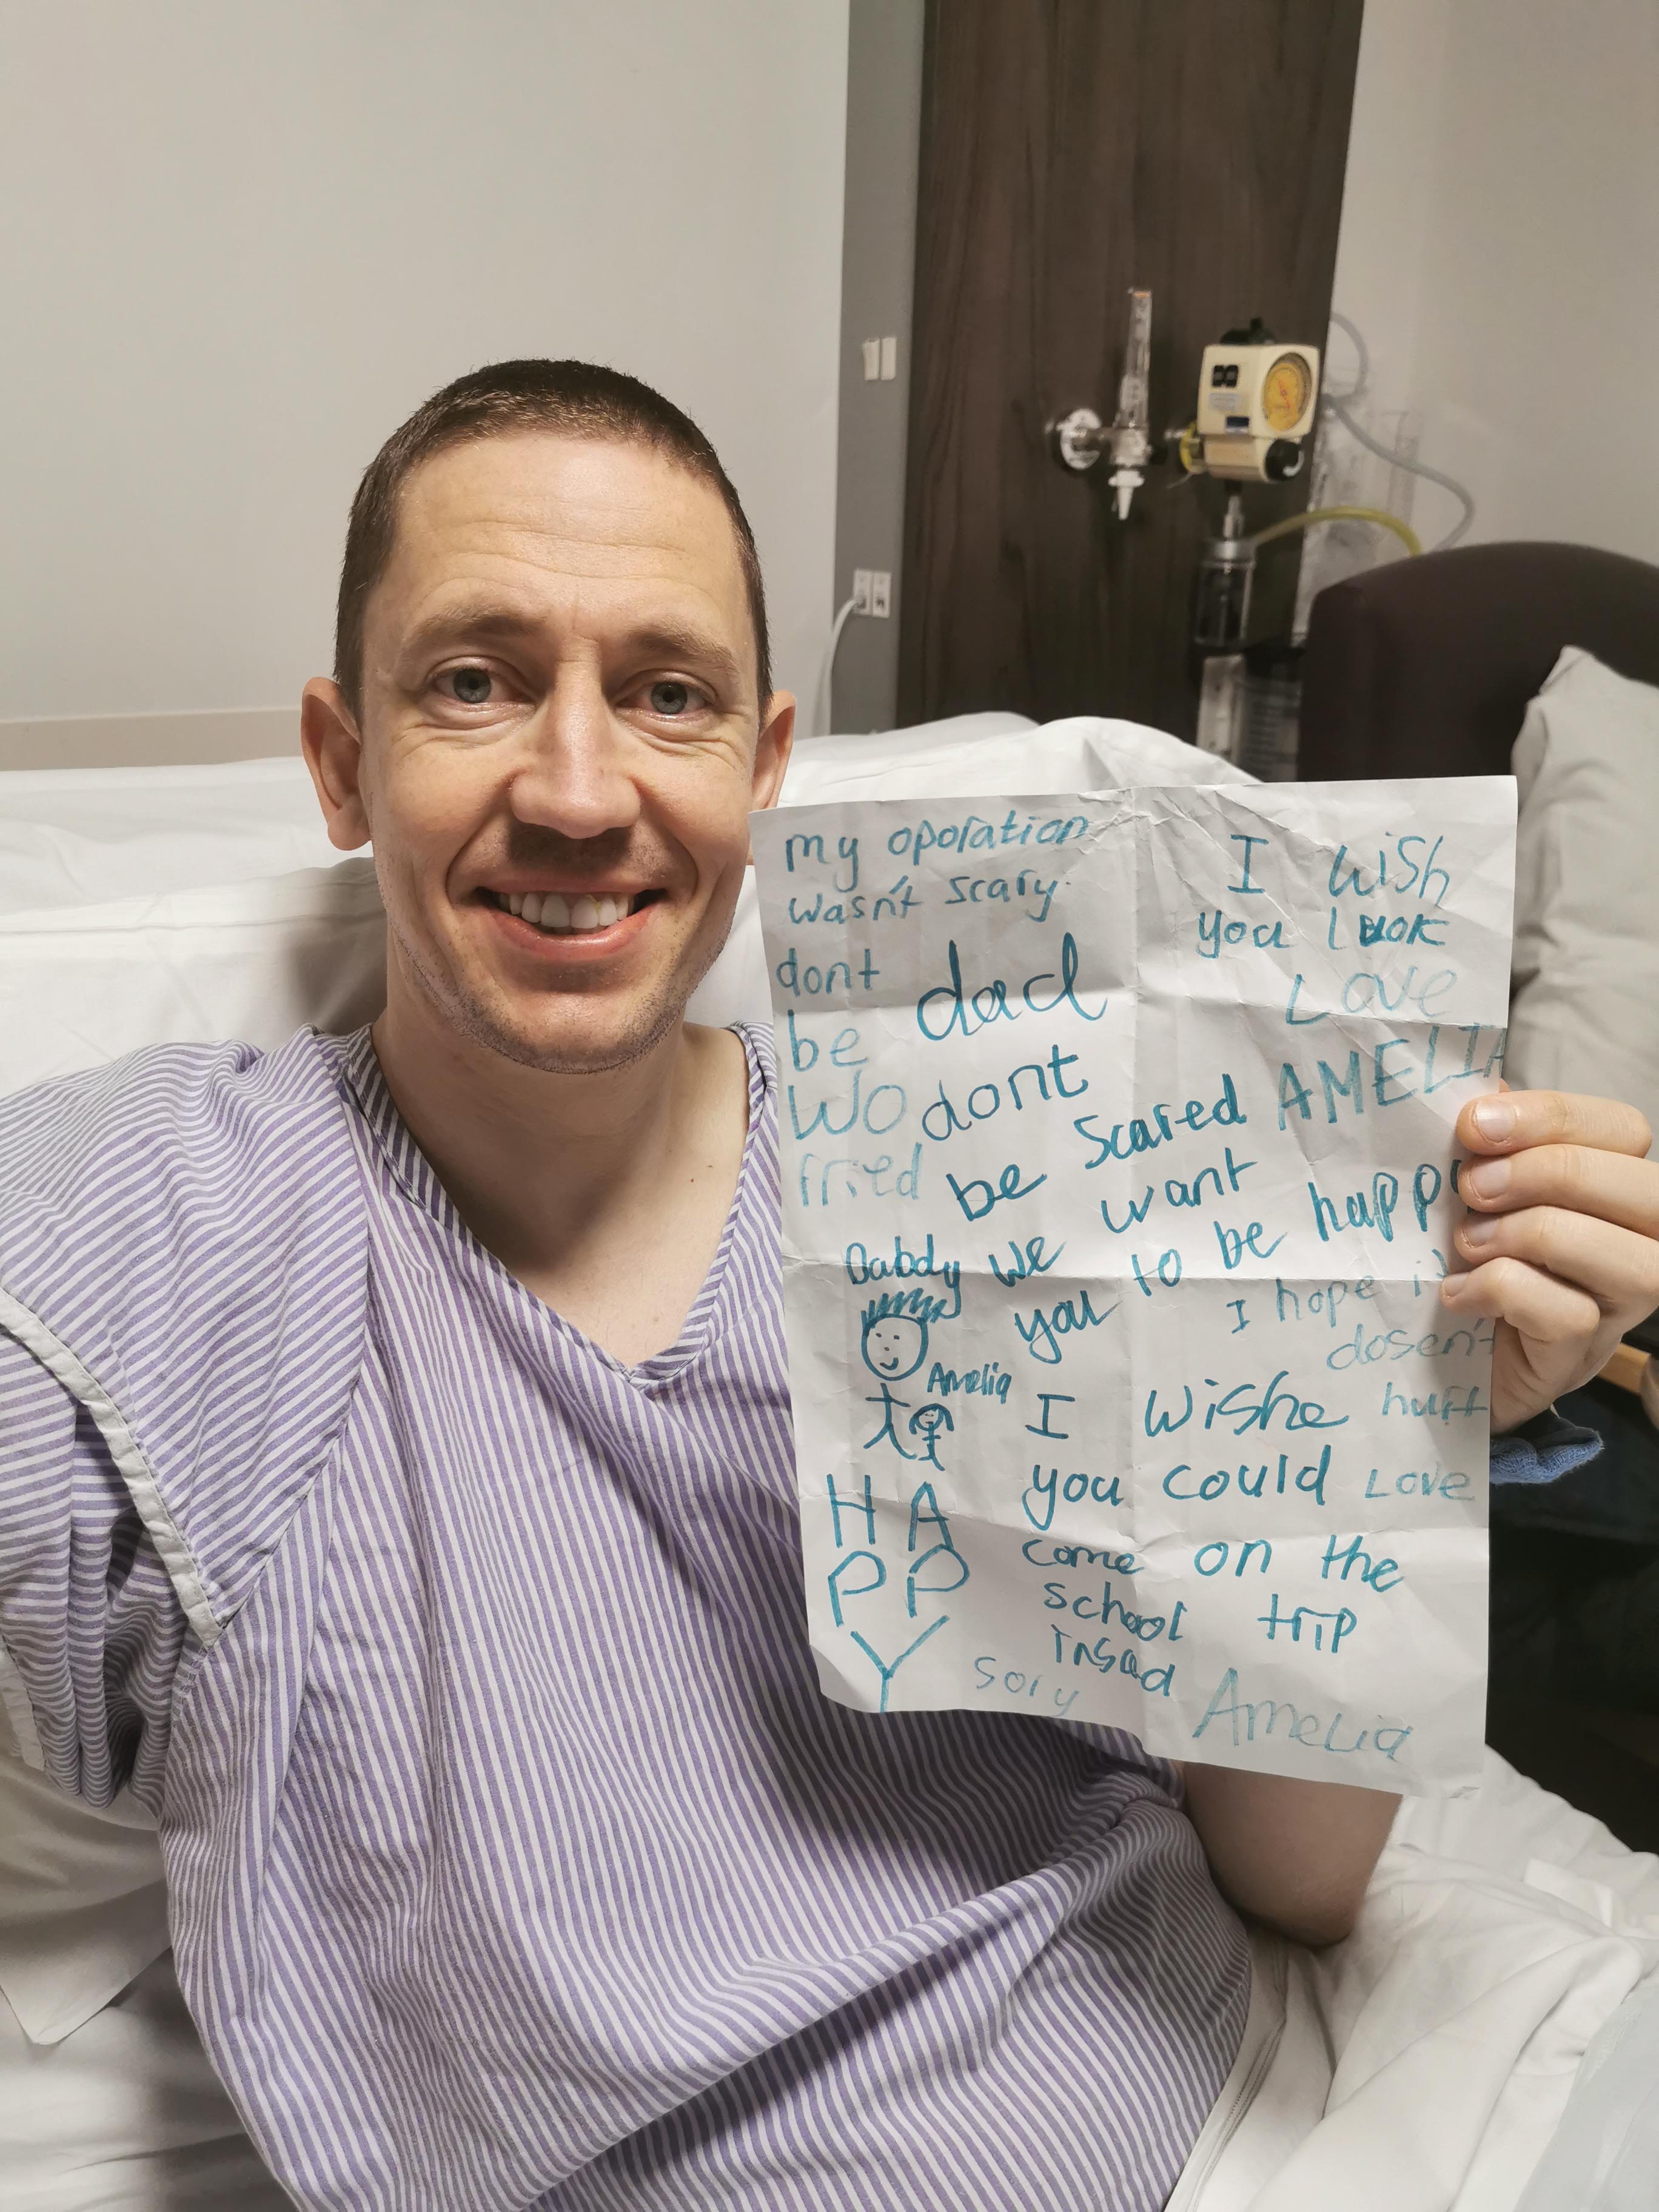 my oporation
wasn't scary.
dont
be
wo
fried
dad
dont
be scared
we want
you to be happy
I wish
you luok
Love
AMELIA
I hope it
dosen't
hurt
Love
Dabdy
Amelia
H A
P P
Y
I wishe
you could
come on the
school trip
insad
sory
Amelia